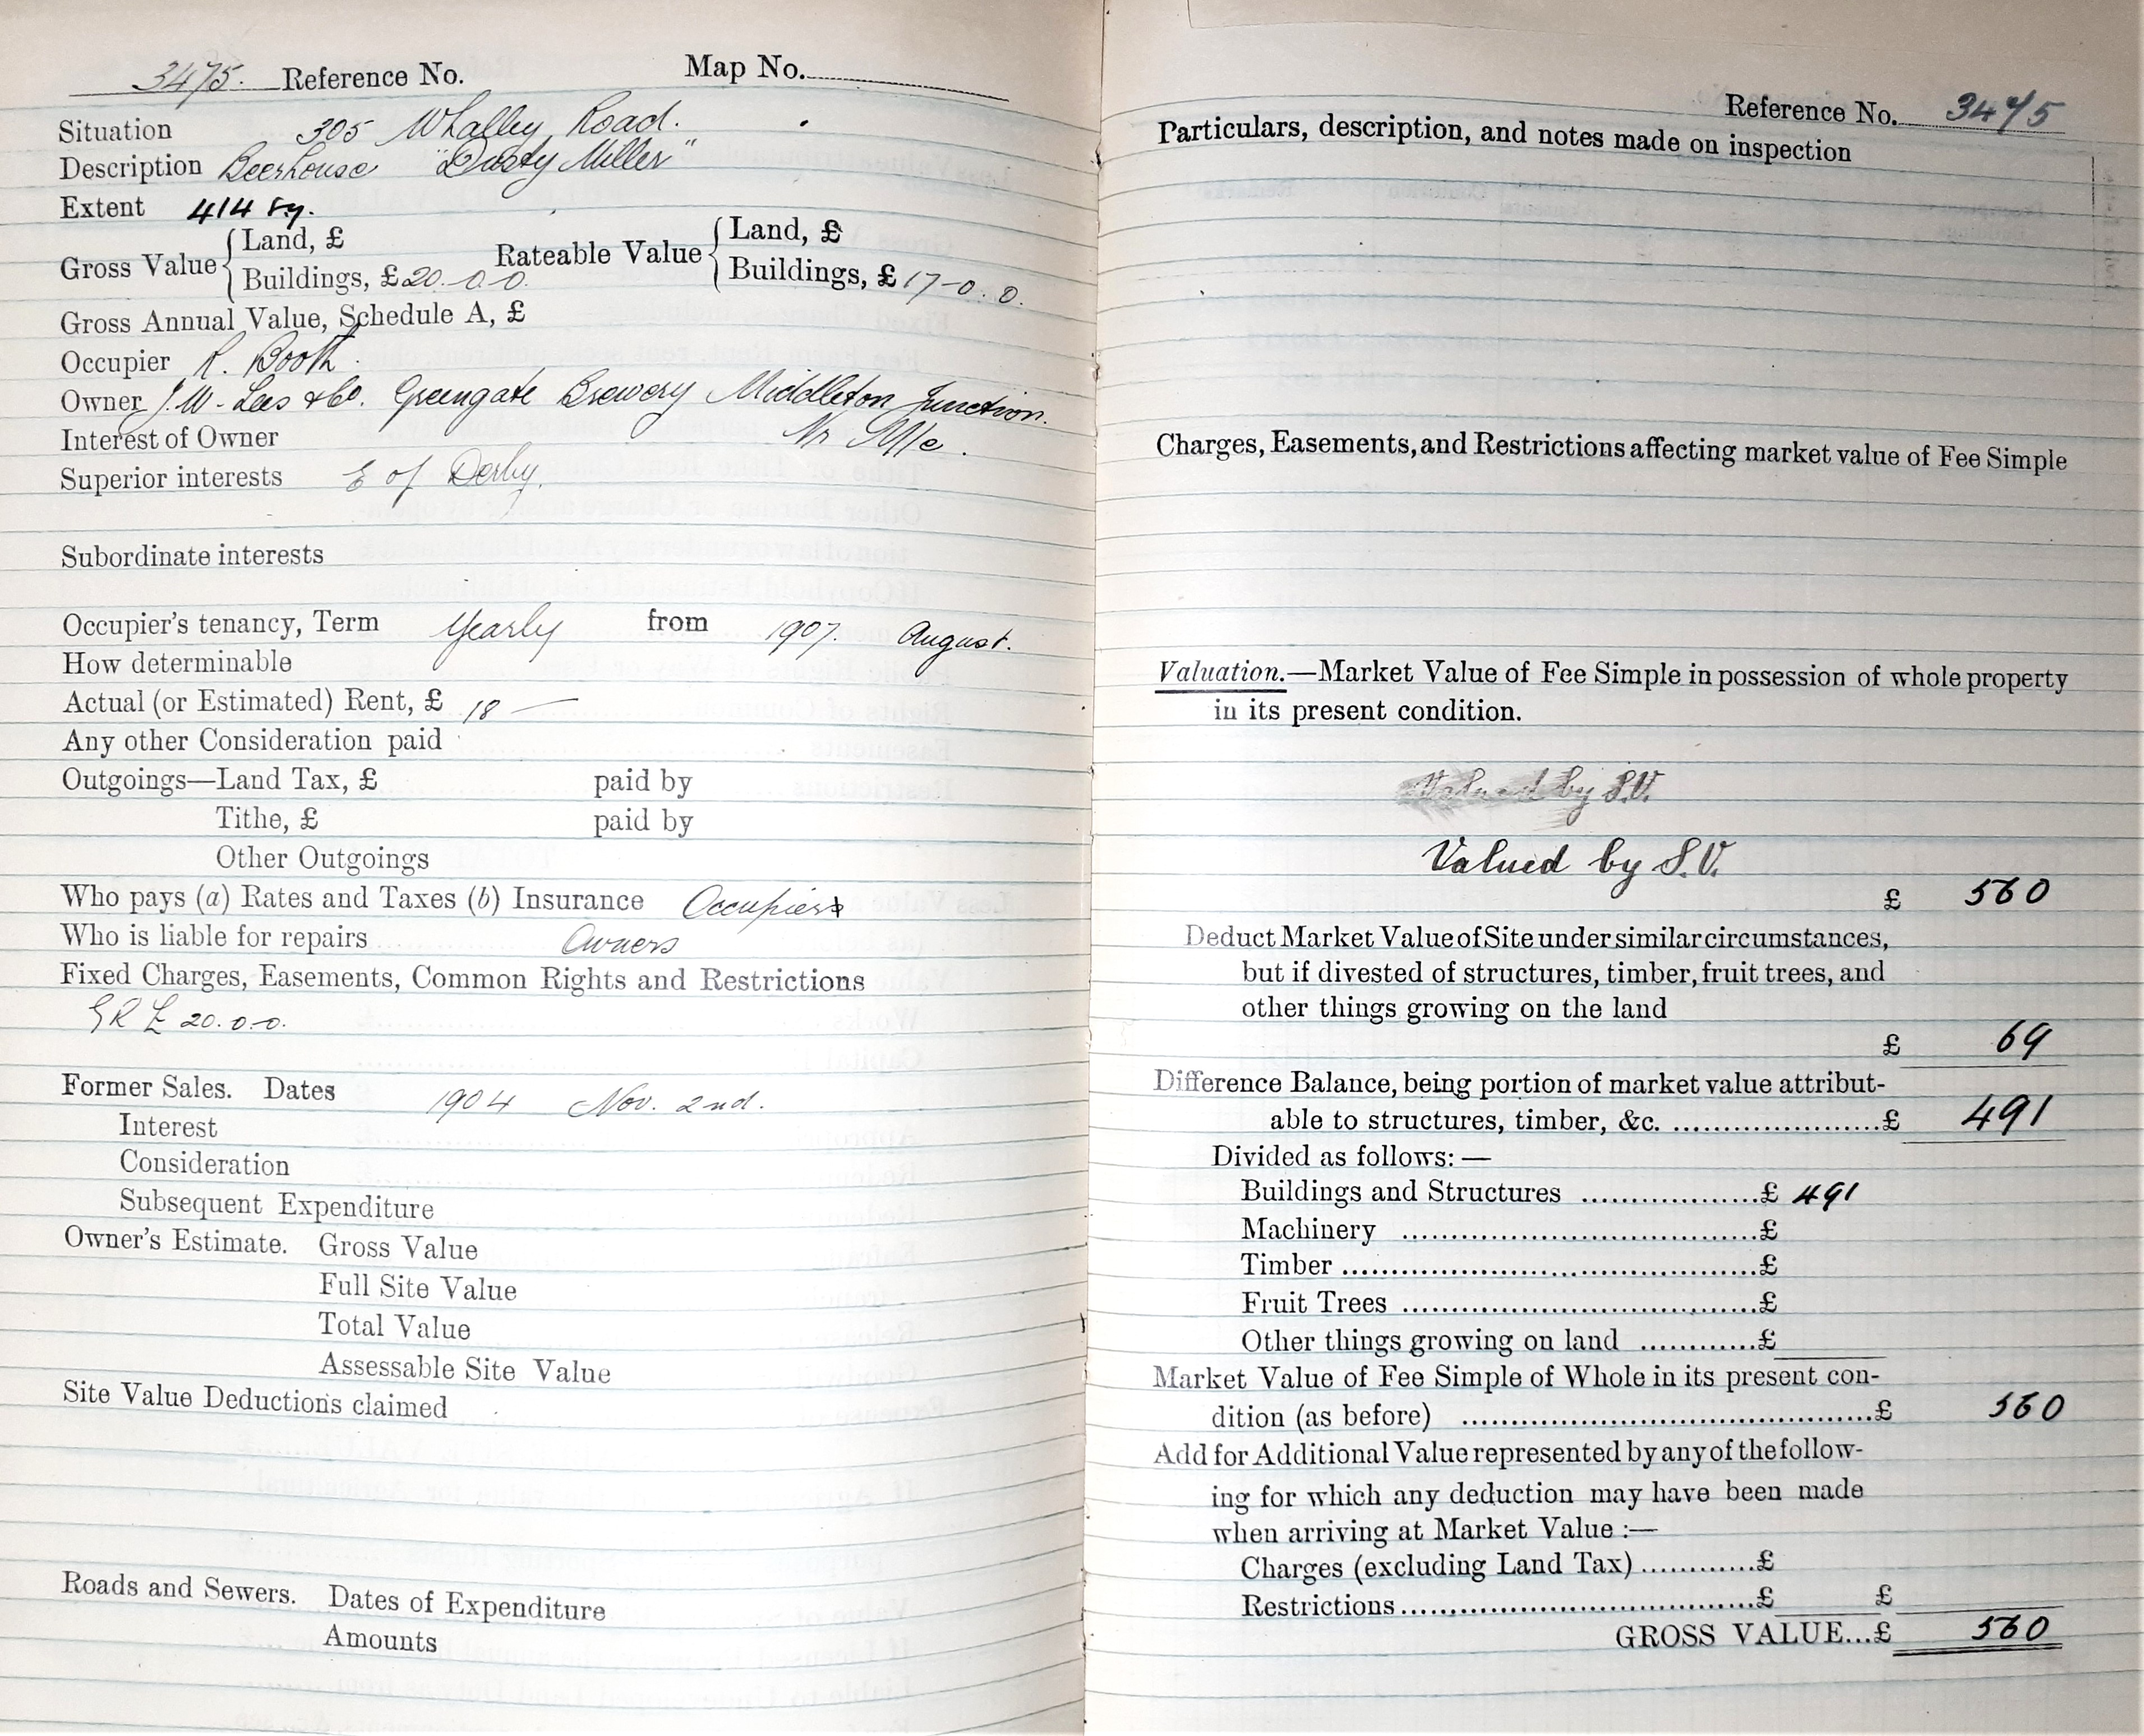 3475. Reference No. Map No.
Situation 305 Whalley Road.
Description Beerhouse "Dusty Miller"
Extent 414 sy.
Gross Value { Land, £ Rateable Value { Land, £
Buildings, £ 20-0-0. Buildings, £ 17-0.0.
Gross Annual Value, Schedule A, £
Occupier R. Booth.
Owner J.W. Lees & Co. Greengate Brewery Middleton Junction.
Interest of Owner Nr M/c.
Superior interests E of Derby.
Subordinate interests
Occupier's tenancy, Term Yearly from 1907. August.
How determinable
Actual (or Estimated) Rent, £ 18 —
Any other Consideration paid
Outgoings—Land Tax, £ paid by
Tithe, £ paid by
Other Outgoings
Who pays (a) Rates and Taxes (b) Insurance Occupier
Who is liable for repairs Owners
Fixed Charges, Easements, Common Rights and Restrictions
GR £ 20.0.0.
Former Sales. Dates 1904 Nov. 2nd.
Interest
Consideration
Subsequent Expenditure
Owner's Estimate. Gross Value
Full Site Value
Total Value
Assessable Site Value
Site Value Deductions claimed
Roads and Sewers. Dates of Expenditure
Amounts
Reference No. 3475
Particulars, description, and notes made on inspection
Charges, Easements, and Restrictions affecting market value of Fee Simple
Valuation.—Market Value of Fee Simple in possession of whole property
in its present condition.
Valued by S.V.
Valued by S.V.
£ 560
Deduct Market Value of Site under similar circumstances,
but if divested of structures, timber, fruit trees, and
other things growing on the land
£ 69
Difference Balance, being portion of market value attribut-
able to structures, timber, &c. ....................£ 491
Divided as follows: —
Buildings and Structures ..................£ 491
Machinery ..................£
Timber ..................£
Fruit Trees ..................£
Other things growing on land ............£
Market Value of Fee Simple of Whole in its present con-
dition (as before) ..................£ 560
Add for Additional Value represented by any of the follow-
ing for which any deduction may have been made
when arriving at Market Value :—
Charges (excluding Land Tax) ............£
Restrictions ..................£ £
GROSS VALUE...£ 560